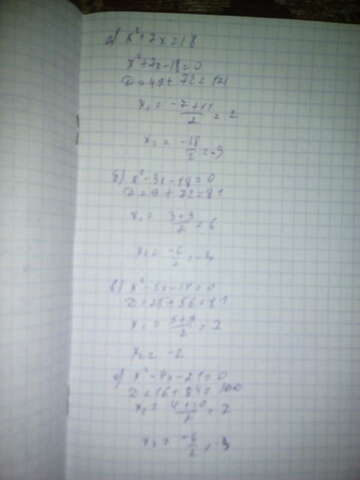 а) x²+7x=18
x²+7x-18=0
D=49+72=121
x₁= (-7+11)/2 = 2
x₂= -18/2 = -9
б) x²-3x-18=0
D=9+72=81
x₁= (3+9)/2 = 6
x₂= -6/2 = -3
в) x²-5x-14=0
D=25+56=81
x₁= (5+9)/2 = 7
x₂= -2
x²-4x-21=0
D=16+84=100
x₁= (4+10)/2 = 7
x₂= -6/2 = -3